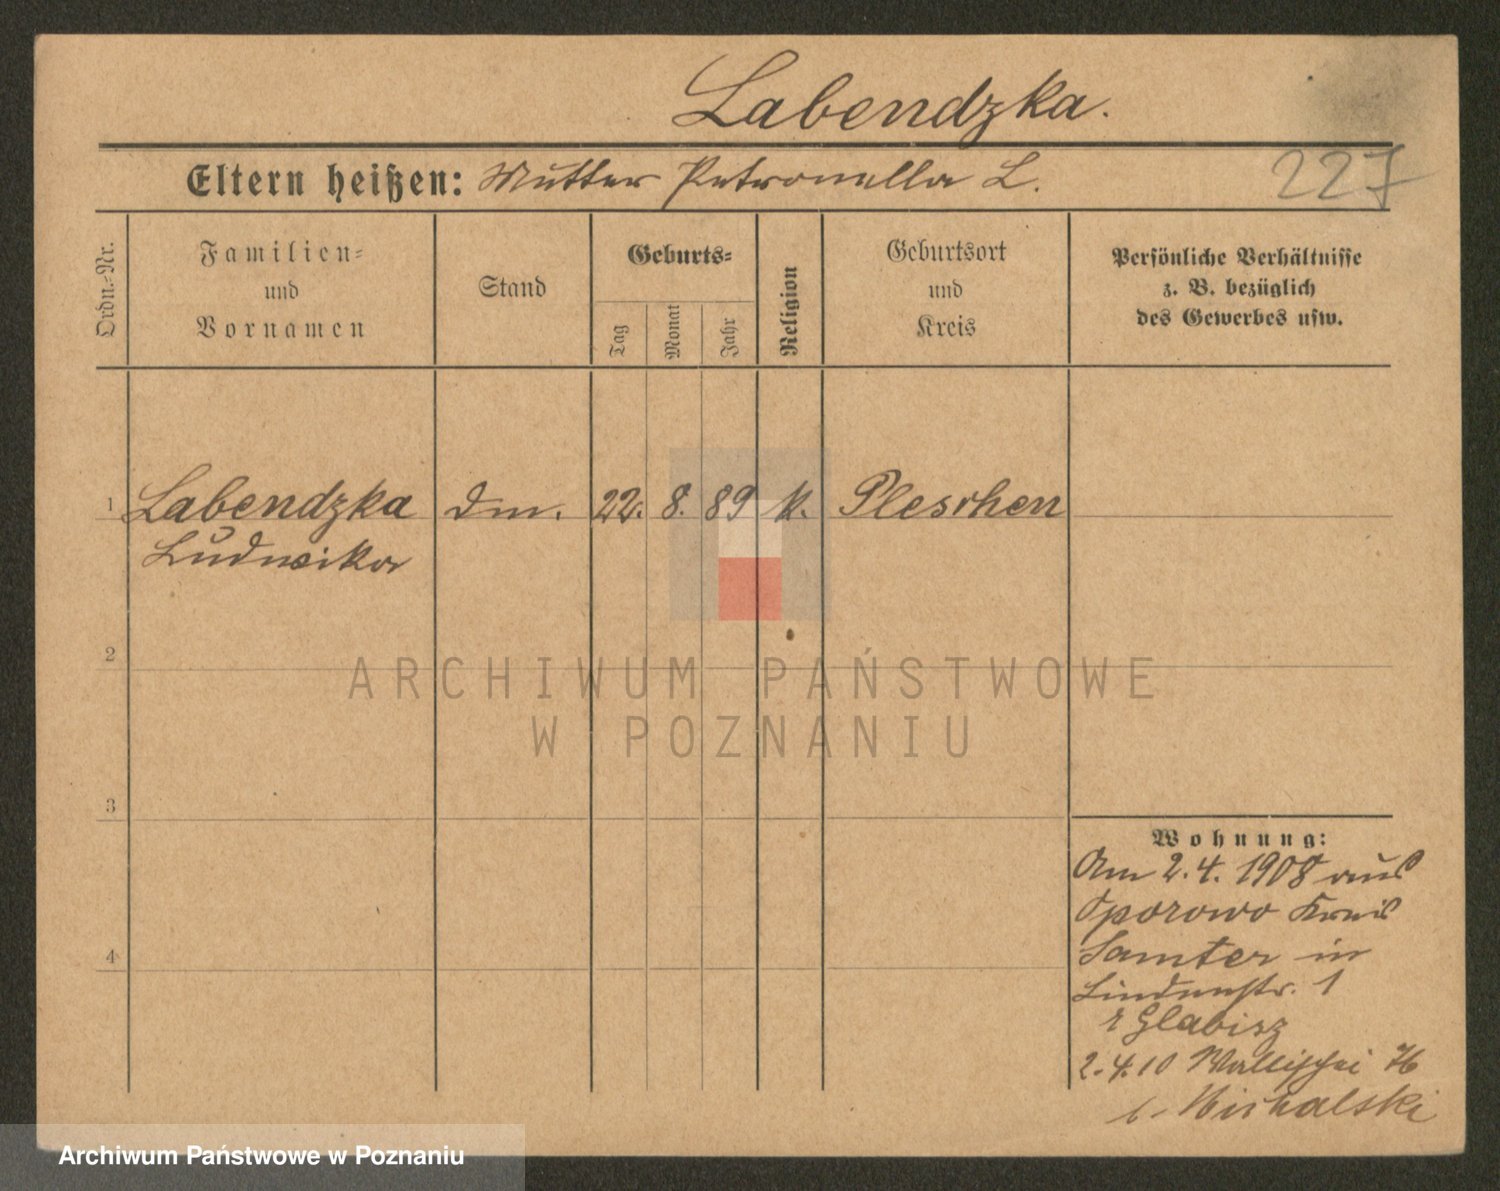 Labendzka.
Eltern heißen: Mutter Petronella L.
227
Ordn.-Nr.
Familien-
und
Vornamen
Stand
Geburts-
Tag
Monat
Jahr
Religion
Geburtsort
und
Kreis
Persönliche Verhältnisse
z. B. bezüglich
des Gewerbes usw.
1 Labendzka dm. 22. 8. 89 k. Pleschen
Ludwika
2
ARCHIWUM PAŃSTWOWE
W POZNANIU
3
Wohnung:
Am 2.4.1908 aus
Oporowo Kreis
Samter in
Lindenstr. 1
Glabisz
4
2.4.10 Wallischei 76
Michalski
Archiwum Państwowe w Poznaniu